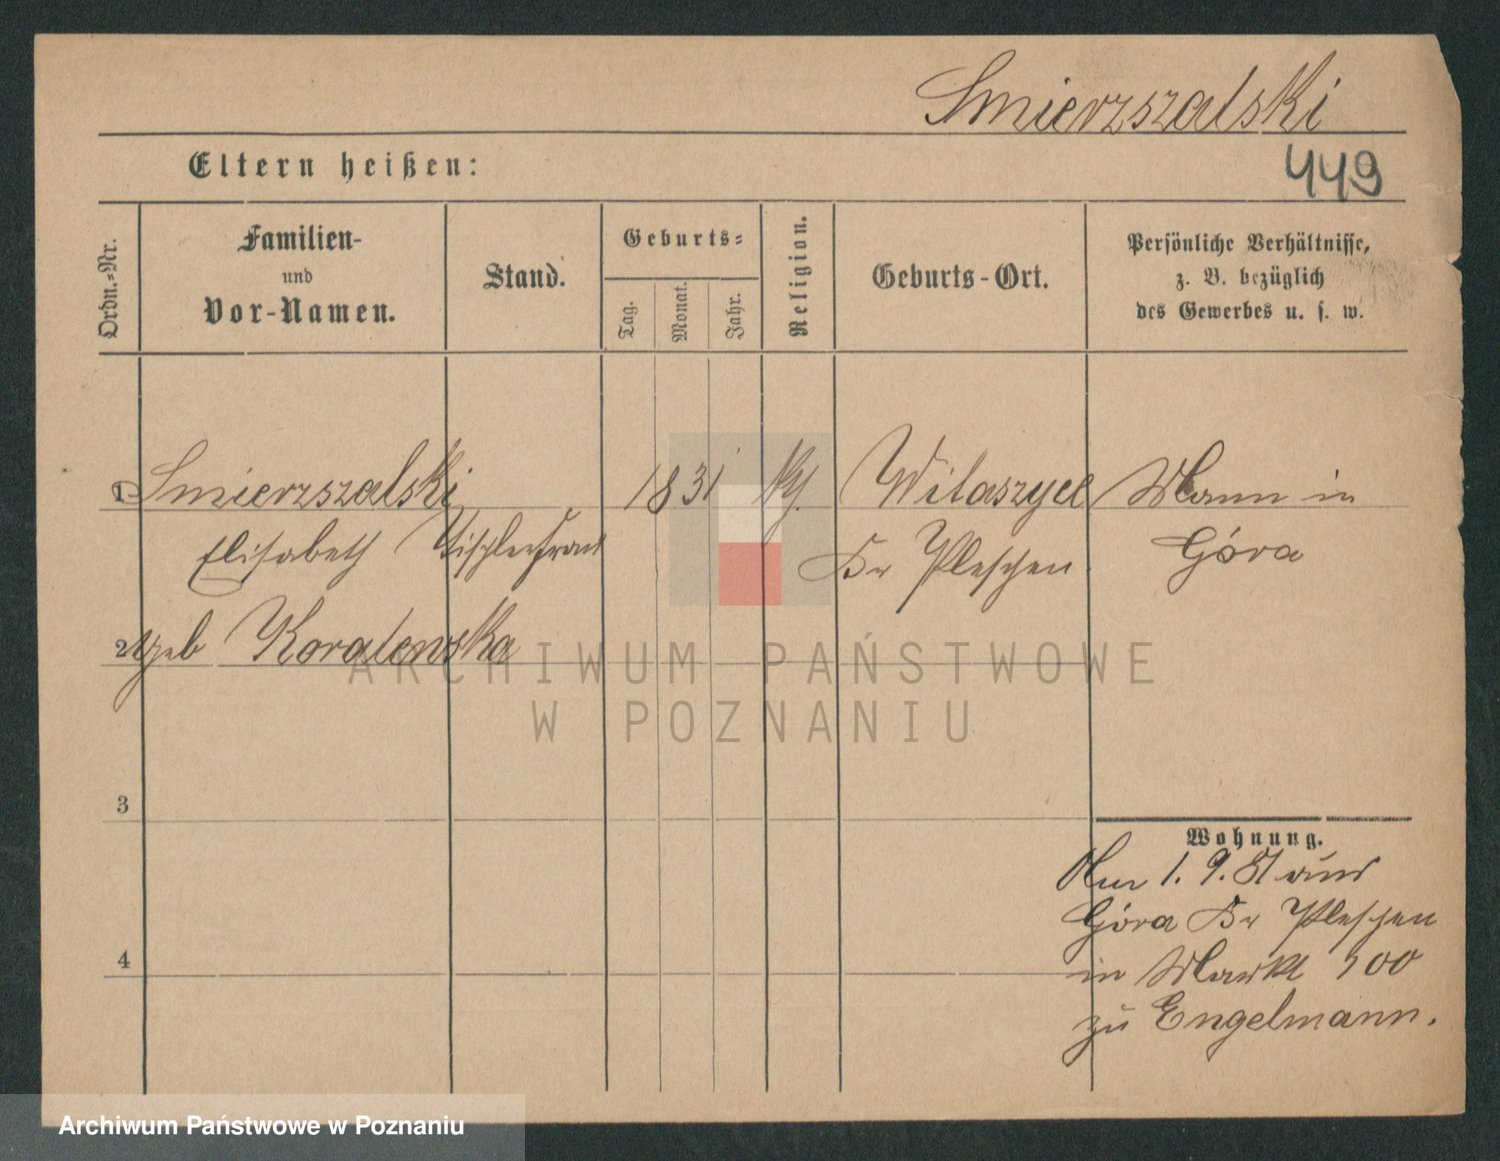 Smierzszalski
Eltern heißen:
449
Ordn.-Nr.
Familien-
und
Vor-Namen.
Stand.
Geburts-
Tag.
Monat.
Jahr.
Religion.
Geburts-Ort.
Persönliche Verhältnisse,
z. B. bezüglich
des Gewerbes u. s. w.
1 Smierzszalski 1831 Wilaszyce Mann in
Elisabeth Tischlerfrau Kr Pleschen Góra
2 geb Koralewska
3
Wohnung.
Am 1. 9. 87 aus
Góra Kr Pleschen
4
in Markt 100
zu Engelmann.
ARCHIWUM PAŃSTWOWE
W POZNANIU
Archiwum Państwowe w Poznaniu